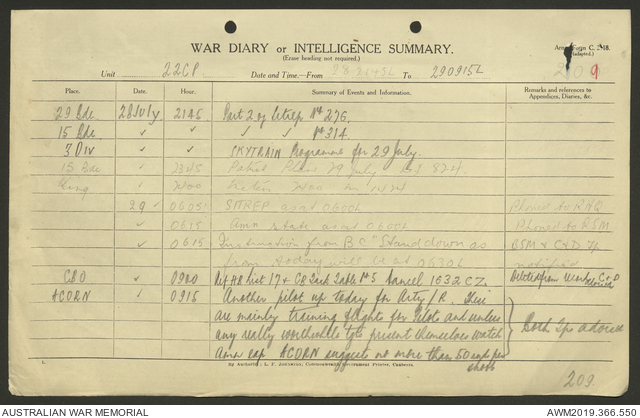 WAR DIARY or INTELLIGENCE SUMMARY.
(Erase heading not required.)
Army Form C. 2118.
(adapted.)
Unit 22CP Date and Time—From To 290915L
9
Place. Date. Hour. Summary of Events and Information. Remarks and references to Appendices, Diaries, &c.
29 Bde. 28 July 2145 Part 2 of Sitrep No 276.
15 Bde. ✓ ✓ " " No 314
3 Div ✓ ✓ SKYTRAIN Programme for 29 July.
15 Bde ✓ 2345 Patrol Plan 29 July
✓ 2400
29 ✓ 0605 SITREP as at 0600h Phoned to RHQ
✓ 0615 Amn state as at 0600h Phoned to RSM
✓ 0615 Instruction from BC "Stand down as BSM & C&D Tp
from today will be at 0630h notified
CBO ✓ 0900 Ref HB List 17 & CB Task Table No 5 Cancel 1632 CZ.
ACORN ✓ 0915 Another pilot up today for Arty/R. These
are mainly training flights for Pilots and unless
any really worthwhile tgts present themselves watch
Amn exp. ACORN suggests no more than 50 rds per
shoot
Both Tps advised
By Authority: L. F. Johnston, Commonwealth Government Printer, Canberra.
209
AUSTRALIAN WAR MEMORIAL
AWM2019.366.550